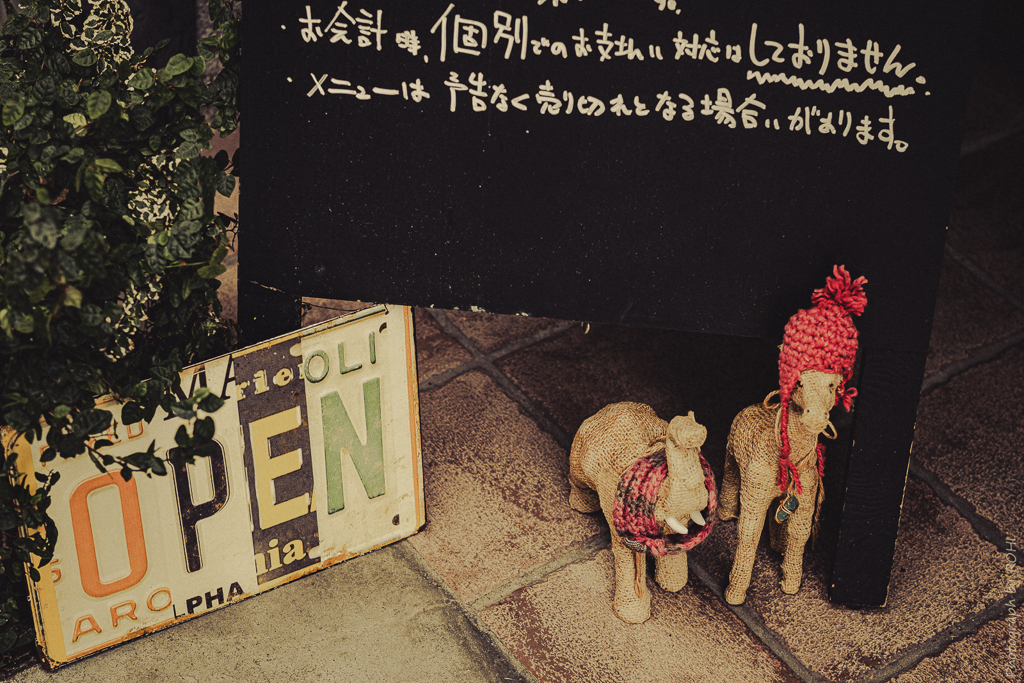 ・お会計時、個別でのお支払い対応はしておりません。
・メニューは予告なく売り切れとなる場合いがあります。
OLI
OPEN
nia
ARO
LPHA